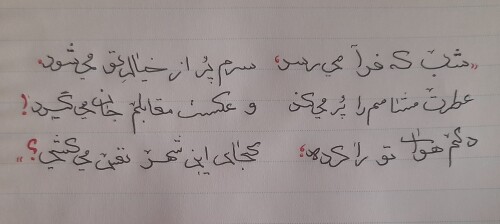 «شب که فرا می‌رسد، سرم پُر از خیالِ تو می‌شود،
عطرت مشامم را پُر می‌کند و عکست مقابلم جان می‌گیرد!
دلم هوای تو را کرده، کجای این شهر نفس می‌کشی؟»